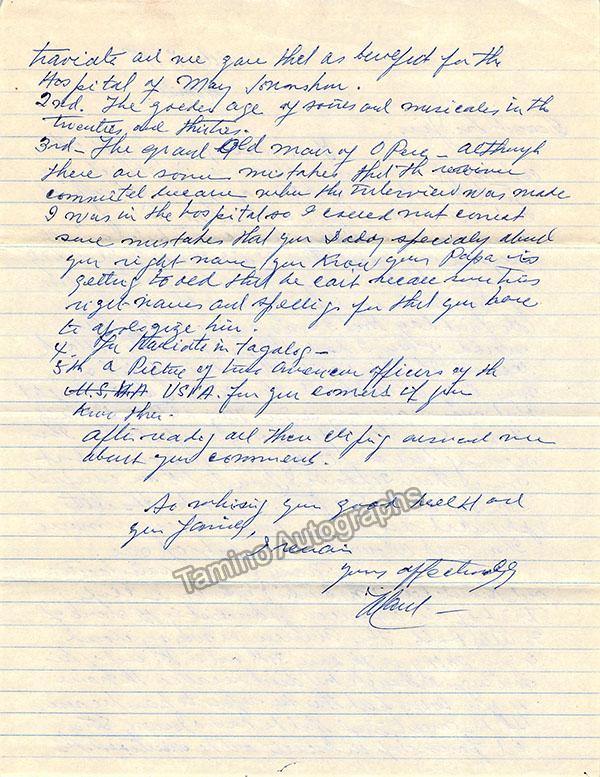 traviata and we gave that as benefit for the
Hospital of May
2nd. The golden age of soirees and musicales in the
twenties, and thirties.
3rd - The grand Old man of Opera - although
there are some mistakes that the reviewer
committed because when the Interview was made
I was in the hospital so I could not correct
some mistakes that your Daddy specialy about
your right name you know your Papa is
getting to old that he can't recall sometimes
right names and spellings for that you have
to apologize him.
4. The Traviata in Tagalog -
5th a Picture of two American officers of the
U.S.A. for your comment if you
know them.
after reading all these clipings answer me
about your comments.
So wishing you good health and
your family,
I remain
yours affectionately
Tamino Autographs